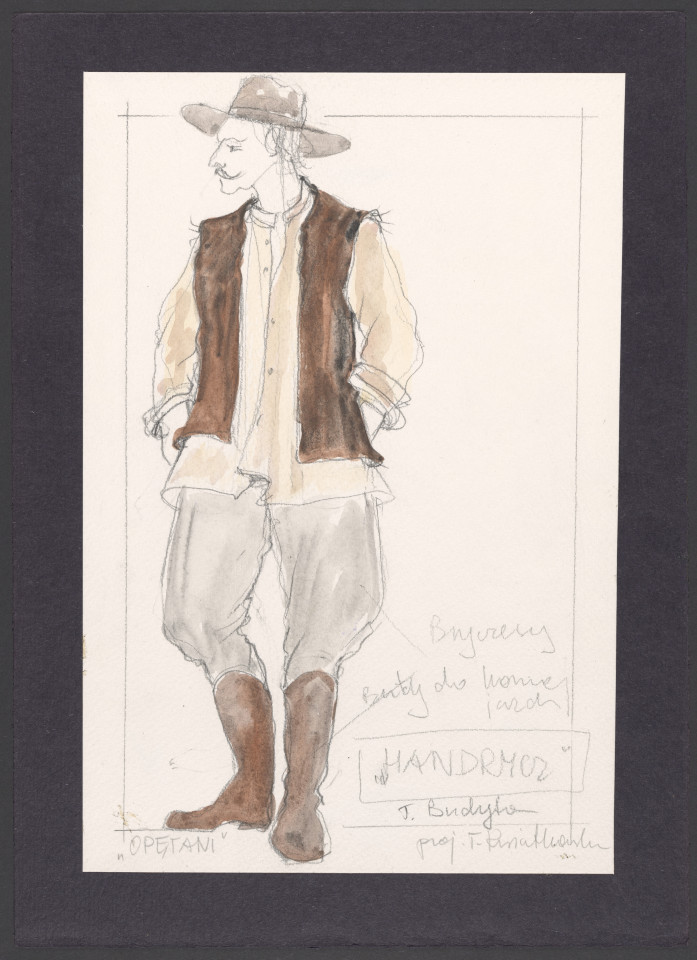 Bryczesy
Buty do konnej
jazdy
"HANDRYCZ"
T. Budyta
"OPĘTANI"
proj. T.